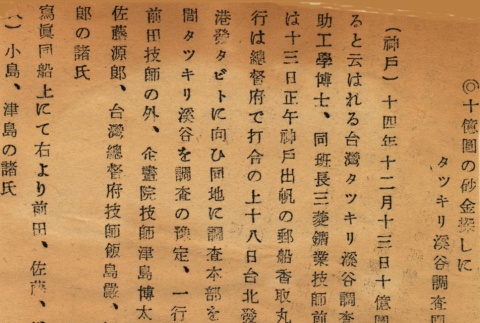 ◎十億圓の砂金探しに
タツキリ溪谷調査
(神戸)十四年十二月十三日十億圓
ると云はれる台灣タツキリ溪谷調査
助工學博士、同班長三菱鑛業技師前
は十三日正午神戸出帆の郵船香取丸
行は總督府で打合の上十八日台北發
港發タビトに向ひ同地に調査本部を
間タツキリ溪谷を調査の豫定、一行
前田技師の外、企畫院技師津島博太
佐藤源郎、台灣總督府技師飯島嚴、
郎の諸氏
寫眞同船上にて右より前田、佐藤、
)小島、津島の諸氏